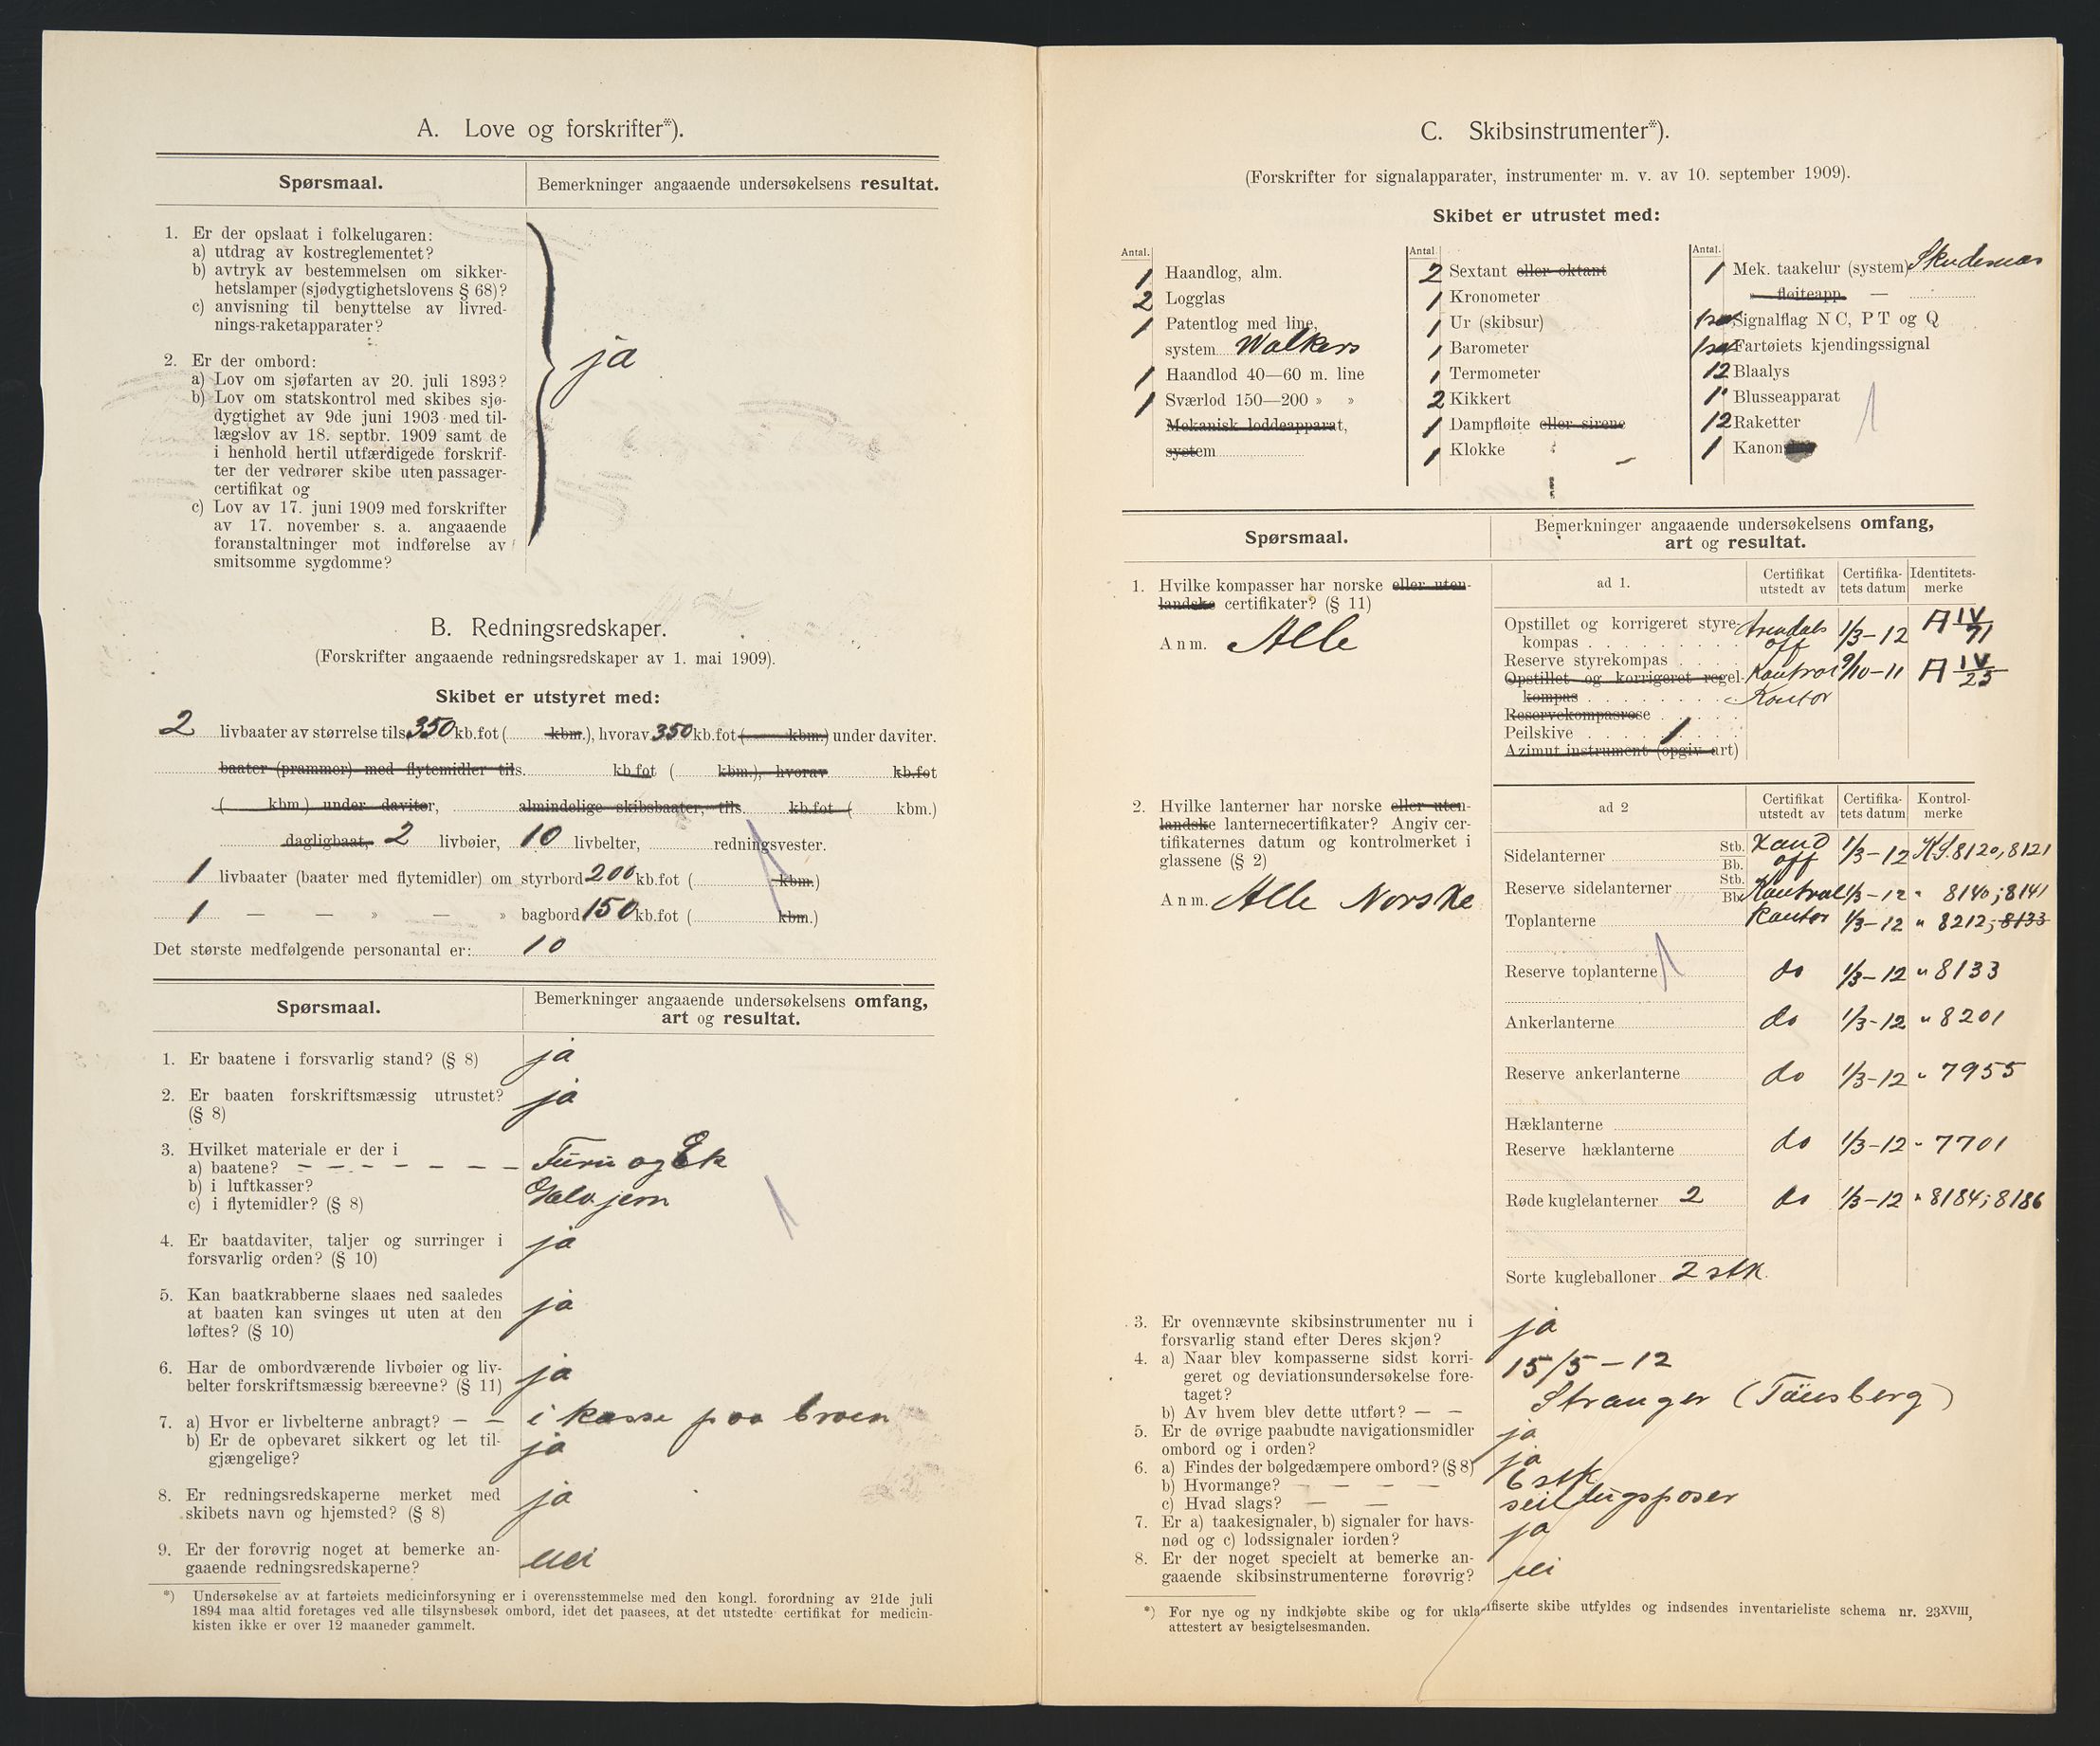 A. Love og forskrifter*).
Spørsmaal.
Bemerkninger angaaende undersøkelsens resultat.
1. Er der opslaat i folkelugaren:
a) utdrag av kostreglementet?
b) avtryk av bestemmelsen om sikker-
hetslamper (sjødygtighetslovens § 68)?
c) anvisning til benyttelse av livred-
nings-raketapparater?
ja
2. Er der ombord:
a) Lov om sjøfarten av 20. juli 1893?
b) Lov om statskontrol med skibes sjø-
dygtighet av 9de juni 1903 med til-
lægslov av 18. septbr. 1909 samt de
i henhold hertil utfærdigede forskrif-
ter der vedrører skibe uten passager-
certifikat og
c) Lov av 17. juni 1909 med forskrifter
av 17. november s. a. angaaende
foranstaltninger mot indførelse av
smitsomme sygdomme?
B. Redningsredskaper.
(Forskrifter angaaende redningsredskaper av 1. mai 1909).
Skibet er utstyret med:
2 livbaater av størrelse tils. 350 kb.fot ( kbm.), hvorav 350 kb.fot ( kbm.) under daviter.
baater (prammer) med flytemidler tils. kb.fot ( kbm.), hvorav kb.fot
( kbm.) under daviter, almindelige skibsbaater, tils. kb.fot ( kbm.)
dagligbaat, 2 livbøier, 10 livbelter, redningsvester.
1 livbaater (baater med flytemidler) om styrbord 200 kb.fot ( kbm.)
1 — — » — » bagbord 150 kb.fot ( kbm.)
Det største medfølgende personantal er: 10
Spørsmaal.
Bemerkninger angaaende undersøkelsens omfang,
art og resultat.
1. Er baatene i forsvarlig stand? (§ 8) ja
2. Er baaten forskriftsmæssig utrustet?
(§ 8) ja
3. Hvilket materiale er der i
a) baatene? — — — — — — — Furu og Ek
b) i luftkasser? Galv jern
c) i flytemidler? (§ 8)
4. Er baatdaviter, taljer og surringer i
forsvarlig orden? (§ 10) ja
5. Kan baatkrabberne slaaes ned saaledes
at baaten kan svinges ut uten at den
løftes? (§ 10) ja
6. Har de ombordværende livbøier og liv-
belter forskriftsmæssig bæreevne? (§ 11) ja
7. a) Hvor er livbelterne anbragt? — — i kasse paa broen
b) Er de opbevaret sikkert og let til-
gjængelige? ja
8. Er redningsredskaperne merket med
skibets navn og hjemsted? (§ 8) ja
9. Er der forøvrig noget at bemerke an-
gaaende redningsredskaperne? nei
*) Undersøkelse av at fartøiets medicinforsyning er i overensstemmelse med den kongl. forordning av 21de juli
1894 maa altid foretages ved alle tilsynsbesøk ombord, idet det paasees, at det utstedte certifikat for medicin-
kisten ikke er over 12 maaneder gammelt.
C. Skibsinstrumenter*).
(Forskrifter for signalapparater, instrumenter m. v. av 10. september 1909).
Skibet er utrustet med:
Antal.
1 Haandlog, alm.
2 Logglas
1 Patentlog med line,
system Walkers
1 Haandlod 40—60 m. line
1 Sværlod 150—200 » »
Mekanisk loddeapparat,
system
Antal.
2 Sextant eller oktant
1 Kronometer
1 Ur (skibsur)
1 Barometer
1 Termometer
2 Kikkert
1 Dampfløite eller sirene
1 Klokke
Antal.
1 Mek. taakelur (system) Skudesnæs
» fløiteapp. —
Signalflag N C, P T og Q
Fartøiets kjendingssignal
12 Blaalys
1 Blusseapparat
12 Raketter
1 Kanon
Spørsmaal.
Bemerkninger angaaende undersøkelsens omfang,
art og resultat.
1. Hvilke kompasser har norske eller uten-
landske certifikater? (§ 11)
Anm. Alle
ad 1.
Certifikat utstedt av
Certifika-tets datum
Identitets-merke
Opstillet og korrigeret styre-
kompas Arendals off 1/3-12 A IV/71
Reserve styrekompas Kontrol 9/10-11 A IV/25
Opstillet og korrigeret regel-
kompas Kontor
Reservekompasrose
Peilskive 1
Azimut instrument (opgiv art)
2. Hvilke lanterner har norske eller uten-
landske lanternecertifikater? Angiv cer-
tifikaternes datum og kontrolmerket i
glassene (§ 2)
Anm. Alle Norske
ad 2
Certifikat utstedt av
Certifika-tets datum
Kontrol-merke
Sidelanterner Stb. Bb. off 1/3-12 8120, 8121
Reserve sidelanterner Stb. Bb. Kontrol 1/3-12 " 8140; 8141
Toplanterne Kontor 1/3-12 " 8212; 8133
Reserve toplanterne do 1/3-12 " 8133
Ankerlanterne do 1/3-12 " 8201
Reserve ankerlanterne do 1/3-12 " 7955
Hæklanterne
Reserve hæklanterne do 1/3-12 " 7701
Røde kuglelanterner 2 do 1/3-12 " 8184; 8186
Sorte kugleballoner 2 stk.
3. Er ovennævnte skibsinstrumenter nu i
forsvarlig stand efter Deres skjøn? ja
4. a) Naar blev kompasserne sidst korri-
geret og deviationsundersøkelse fore-
taget? 15/5-12
b) Av hvem blev dette utført? — — Stranger (Tönsberg)
5. Er de øvrige paabudte navigationsmidler
ombord og i orden? ja
6. a) Findes der bølgedæmpere ombord? (§ 8) ja
b) Hvormange? — — — — 6 stk
c) Hvad slags? — — seildugsposer
7. Er a) taakesignaler, b) signaler for havs-
nød og c) lodssignaler iorden? ja
8. Er der noget specielt at bemerke an-
gaaende skibsinstrumenterne forøvrig? nei
*) For nye og ny indkjøbte skibe og for uklassifiserte skibe utfyldes og indsendes inventarieliste schema nr. 23XVIII,
attestert av besigtelsesmanden.